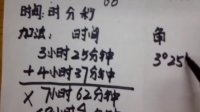 时间:时分秒
加法: 时间 角
3小时25分钟 3°25
+4小时37分钟
× 7小时62分钟